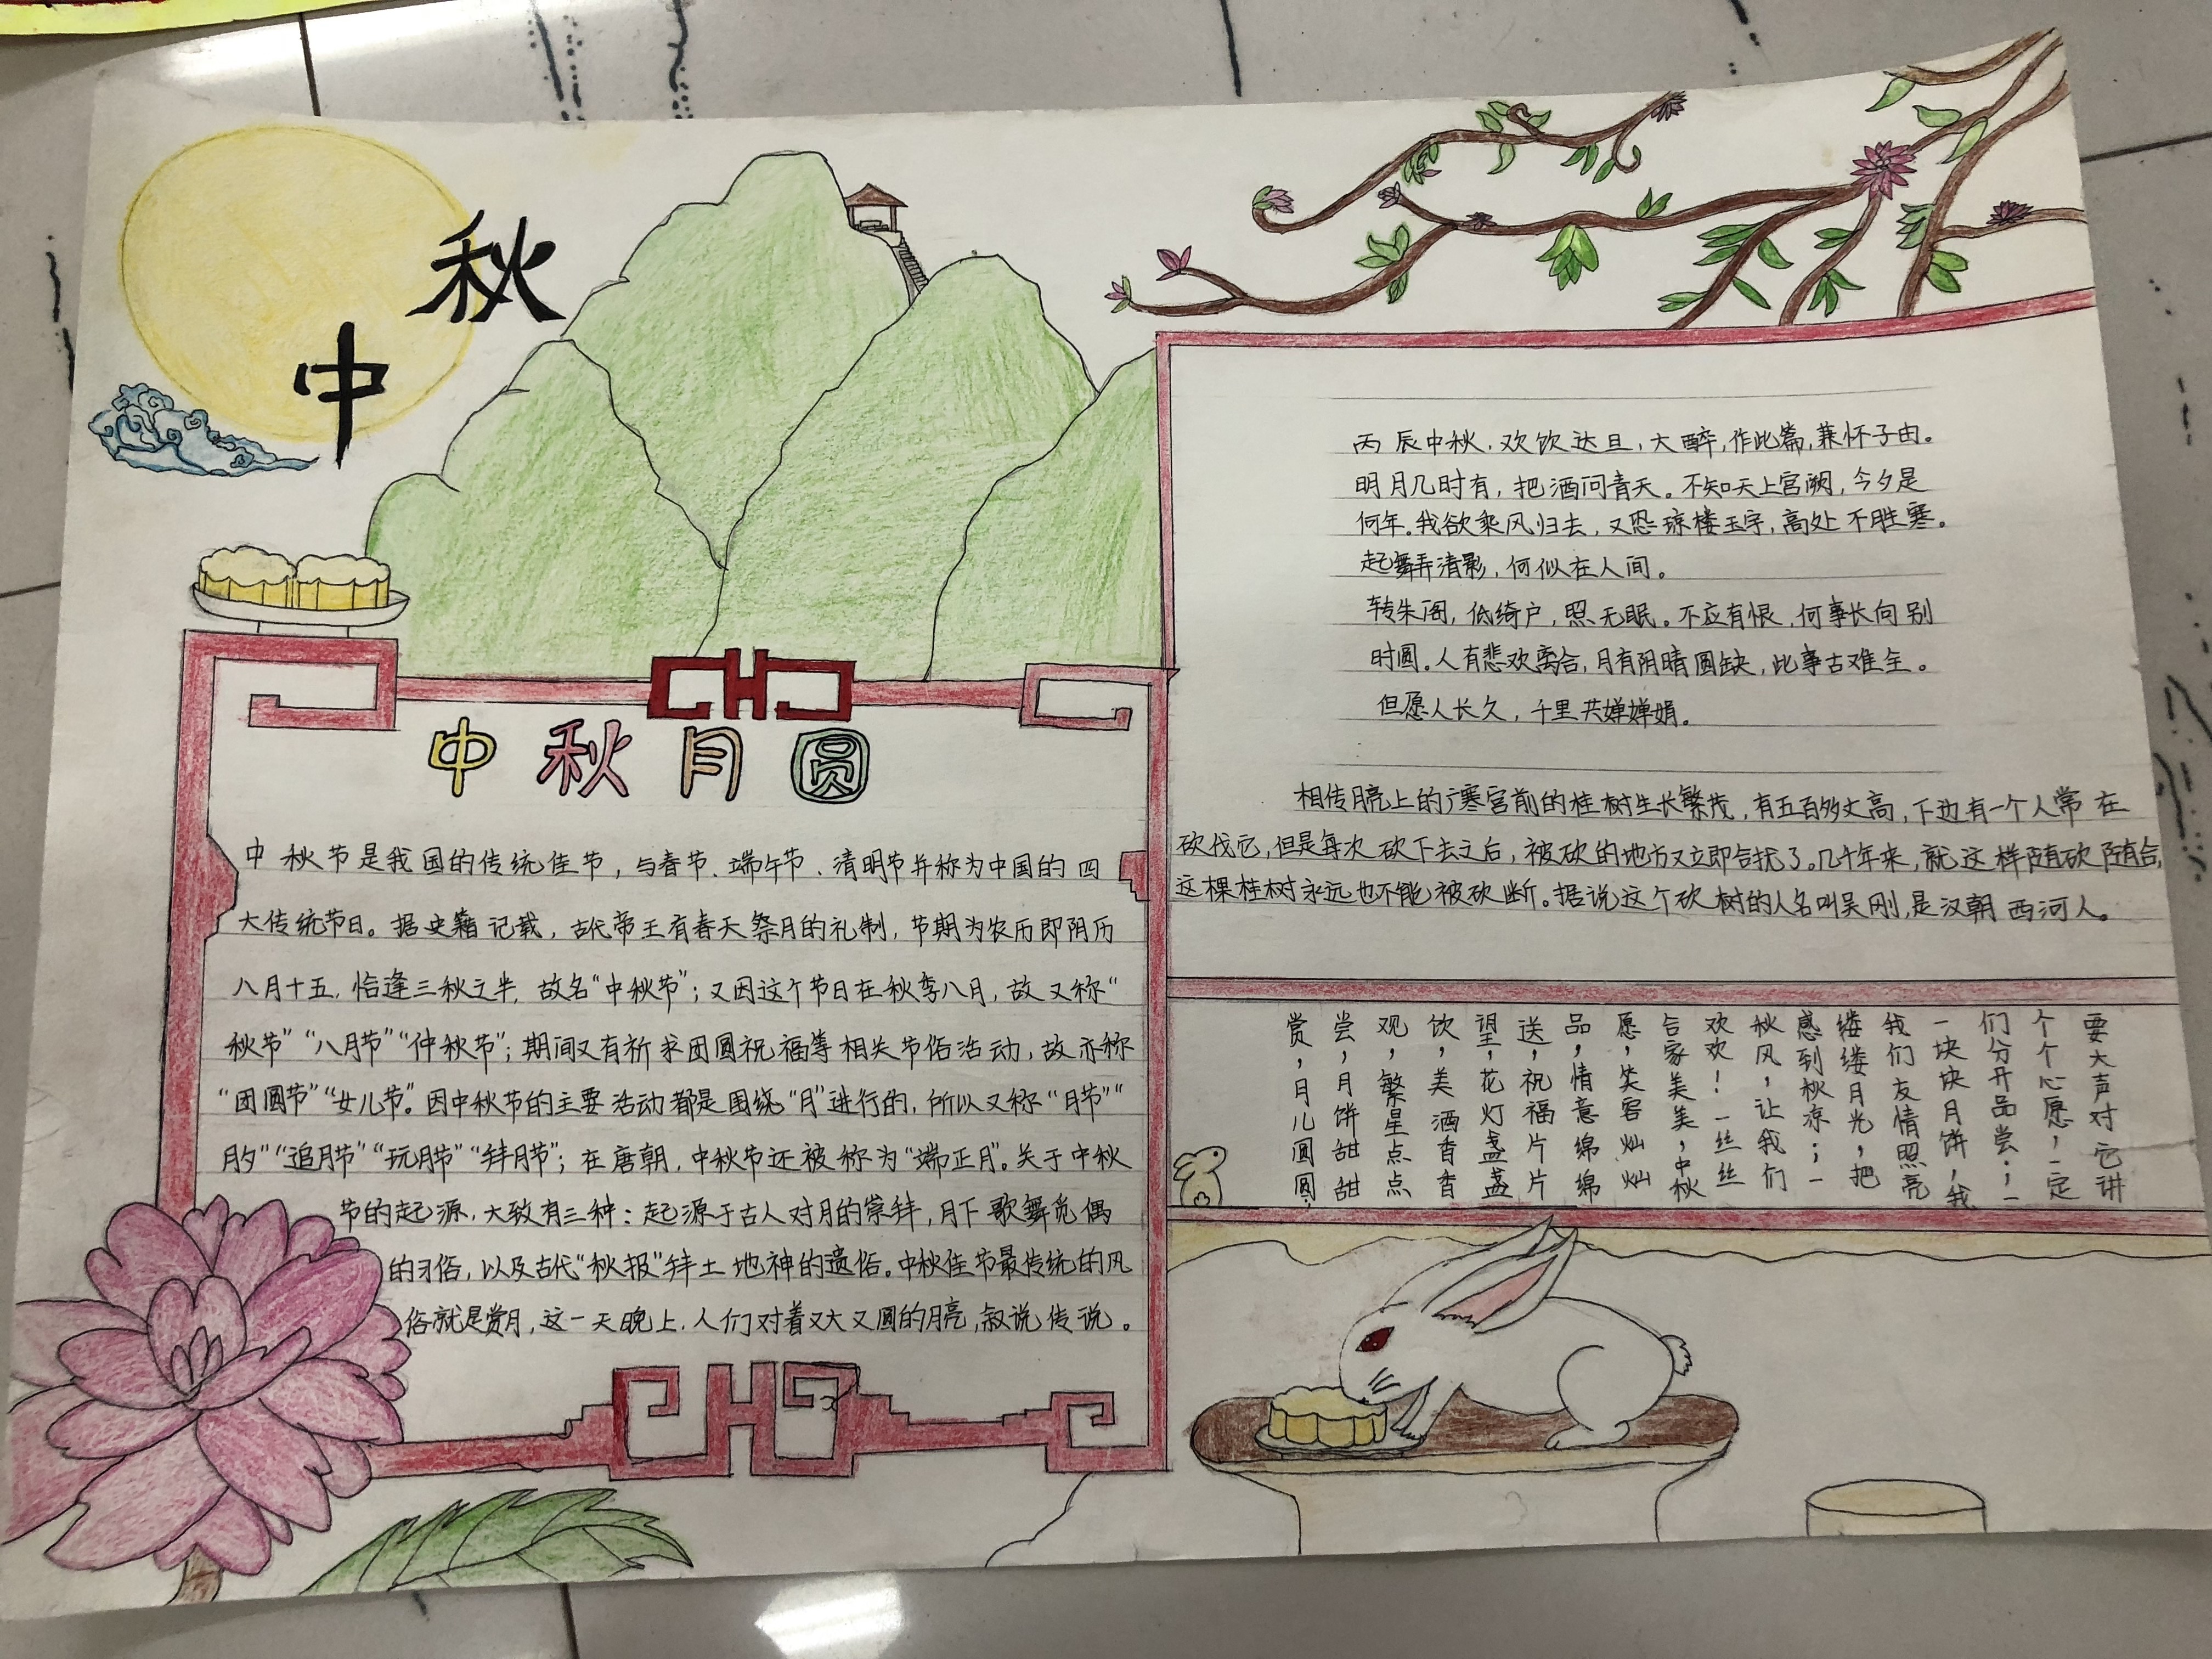 秋
中
中秋月圆
中秋节是我国的传统佳节，与春节、端午节、清明节并称为中国的四
大传统节日。据史籍记载，古代帝王有春天祭月的礼制，节期为农历即阴历
八月十五，恰逢三秋之半，故名“中秋节”；又因这个节日在秋季八月，故又称“
秋节”“八月节”“仲秋节”；期间又有祈求团圆祝福等相关节俗活动，故亦称
“团圆节”“女儿节”。因中秋节的主要活动都是围绕“月”进行的，所以又称“月节”“
月夕”“追月节”“玩月节”“拜月节”；在唐朝，中秋节还被称为“端正月”。关于中秋
节的起源，大致有三种：起源于古人对月的崇拜，月下歌舞觅偶
的习俗，以及古代“秋报”拜土地神的遗俗。中秋佳节最传统的风
俗就是赏月，这一天晚上，人们对着又大又圆的月亮，叙说传说。
丙辰中秋，欢饮达旦，大醉，作此篇，兼怀子由。
明月几时有，把酒问青天。不知天上宫阙，今夕是
何年。我欲乘风归去，又恐琼楼玉宇，高处不胜寒。
起舞弄清影，何似在人间。
转朱阁，低绮户，照无眠。不应有恨，何事长向别
时圆。人有悲欢离合，月有阴晴圆缺，此事古难全。
但愿人长久，千里共婵婵娟。
相传月亮上的广寒宫前的桂树生长繁茂，有五百多丈高，下边有一个人常在
砍伐它，但是每次砍下去之后，被砍的地方又立即合拢了。几千年来，就这样随砍随合，
这棵桂树永远也不能被砍断。据说这个砍树的人名叫吴刚，是汉朝西河人。
赏，月儿圆圆；
尝，月饼甜甜
观，繁星点点
饮，美酒香香
望，花灯盏盏
送，祝福片片
品，情意绵绵
愿，笑容灿灿
合家美美，中秋
欢欢！一丝丝
秋风，让我们
感到秋凉；一
缕缕月光，把
我们友情照亮
一块块月饼，我
们分开品尝；一
个个心愿，一定
要大声对它讲